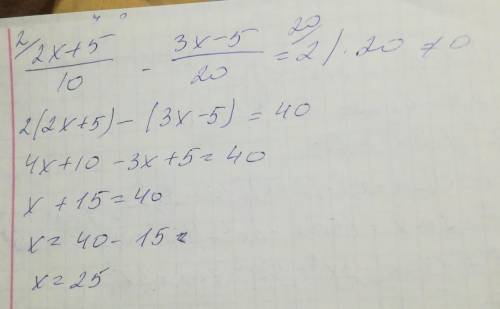 2/ (2x+5)/10 - (3x-5)/20 = 20/ 2 | · 20 ≠ 0
2(2x+5) - (3x-5) = 40
4x+10 - 3x+5 = 40
x + 15 = 40
x = 40 - 15
x = 25